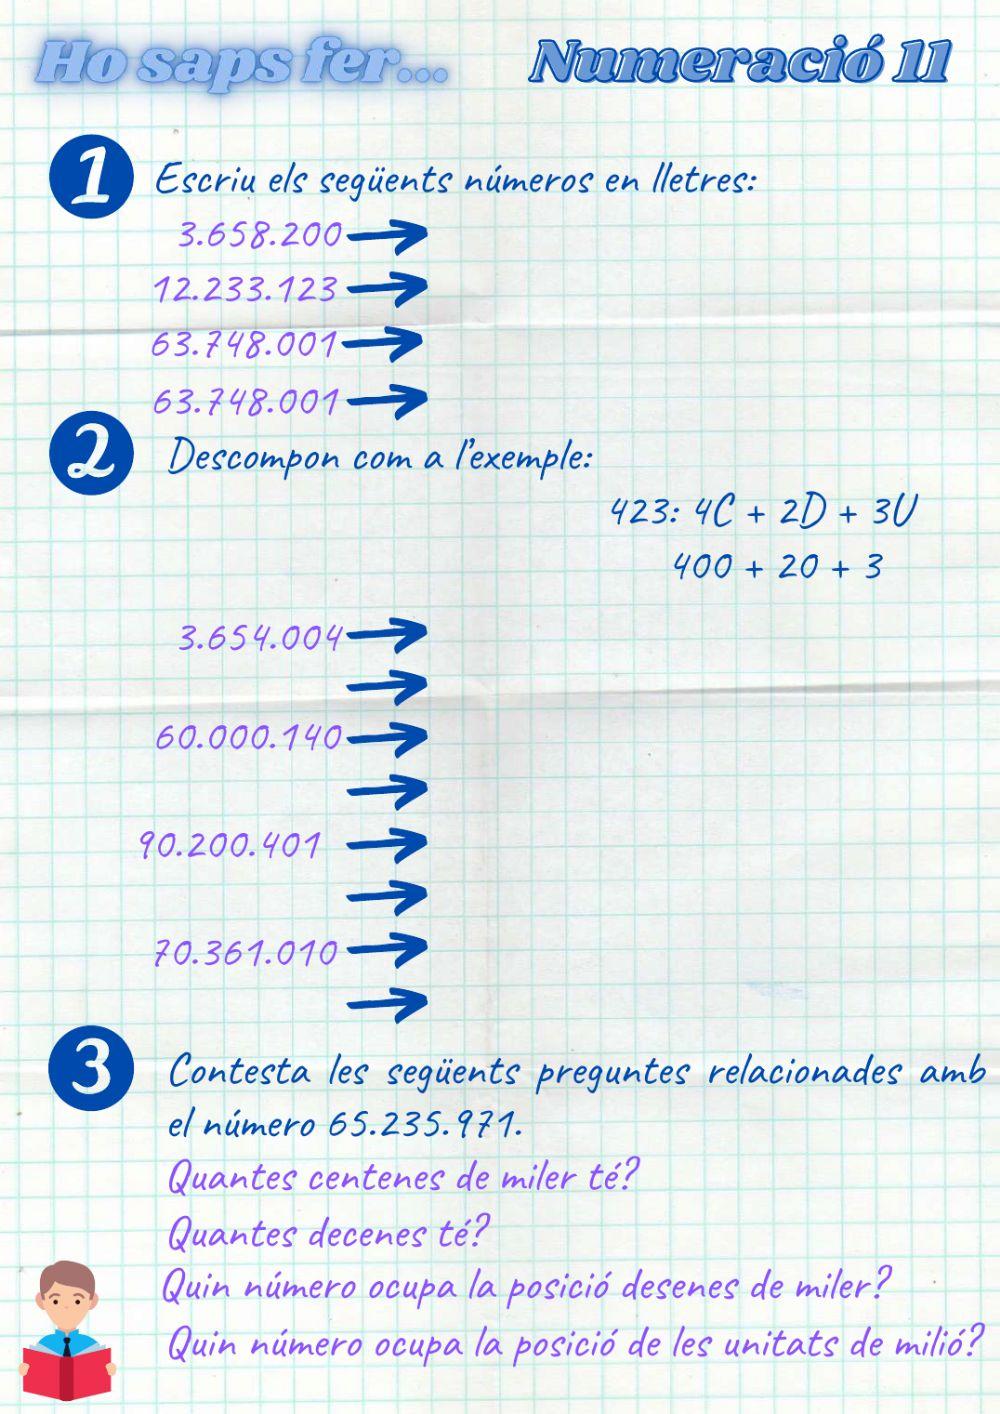 Ho saps fer... Numeració 11
1 Escriu els següents números en lletres:
3.658.200
12.233.123
63.748.001
63.748.001
2 Descompon com a l'exemple:
423: 4C + 2D + 3U
400 + 20 + 3
3.654.004
60.000.140
90.200.401
70.361.010
3 Contesta les següents preguntes relacionades amb
el número 65.235.971.
Quantes centenes de miler té?
Quantes decenes té?
Quin número ocupa la posició desenes de miler?
Quin número ocupa la posició de les unitats de milió?